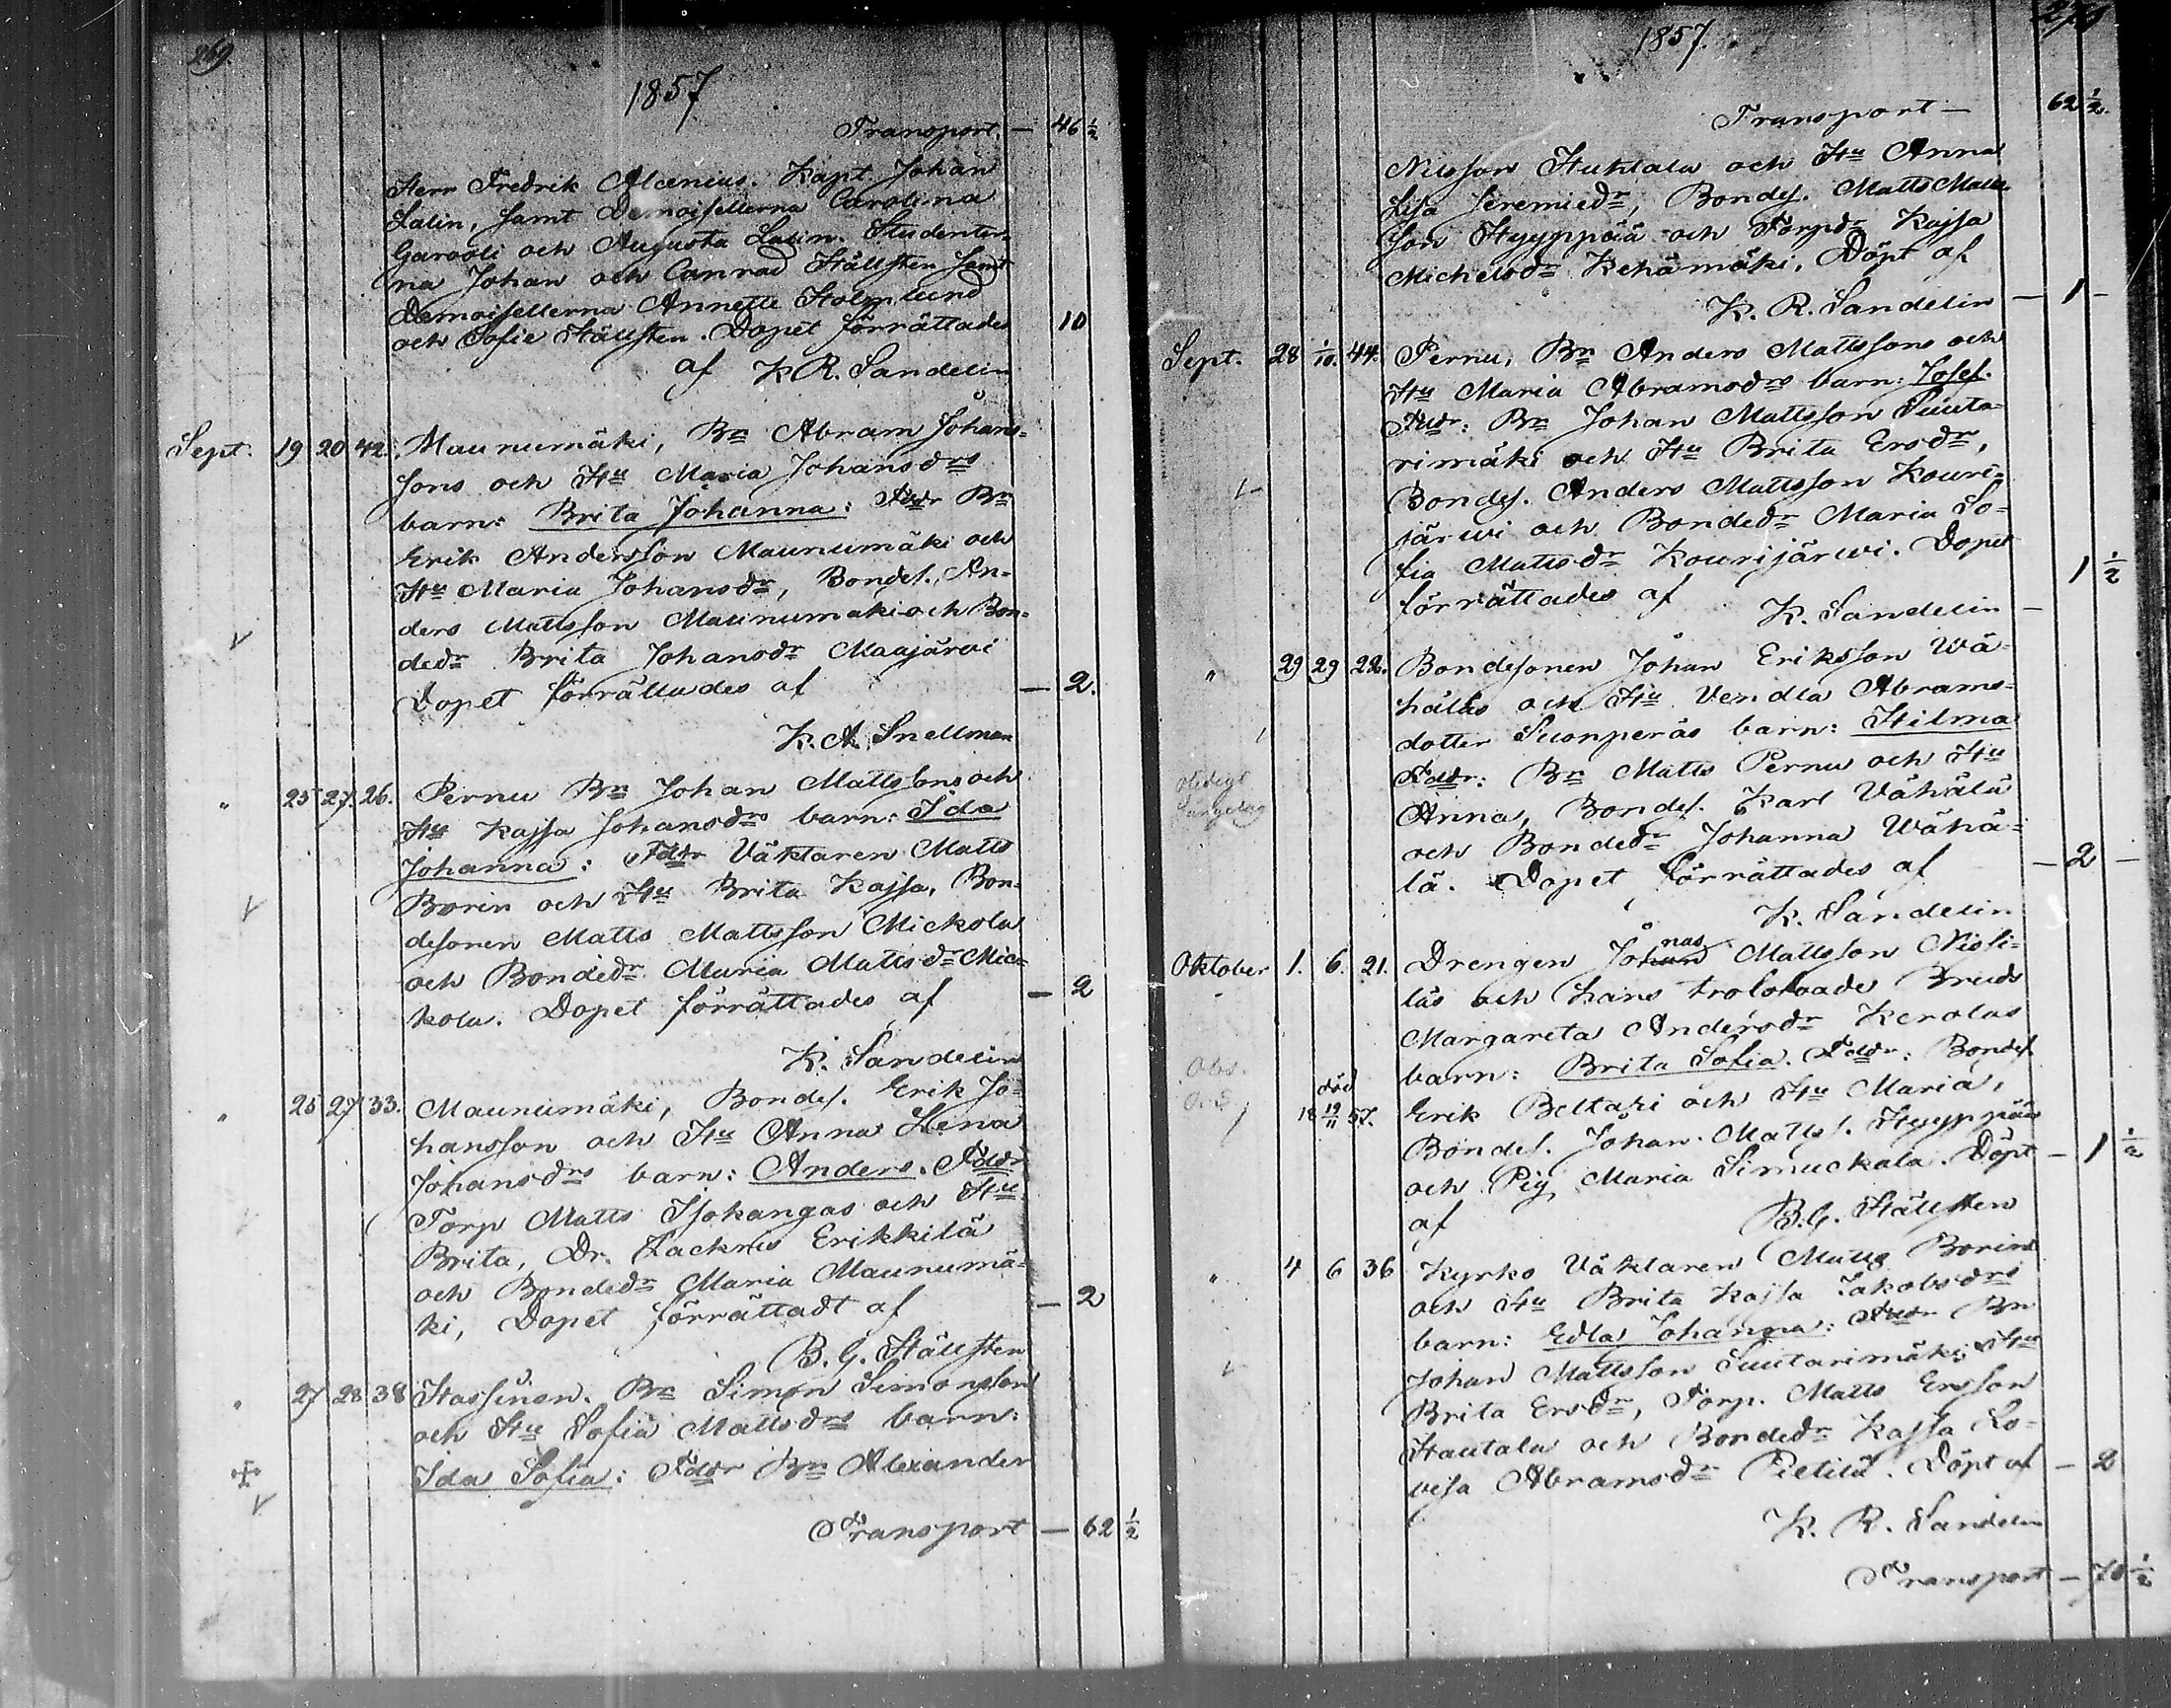 269.
1857
Transport. — 46 ½
Herr Fredrik Alcenius. Kapt Johan
Lalin, samt Demoisellerna Carolina
Garvoli och Augusta Lalin. Studenter-
na Johan och Conrad Hällsten samt
Demoisellerna Annette Holmlund
och Sofie Hällsten. Dopet förrättades 10
af K. R. Sandelin
Sept. 19 20 42. Maunumäki, Bn Abram Johans-
sons och Hu Maria Johansdrs
barn: Brita Johanna: Fddr Bn
Erik Andersson Maunumäki och
Hu Maria Johansdr, Bondes. An-
ders Mattsson Maunumäki och Bon-
dedr Brita Johansdr Maajärvi
Dopet förrättades af — 2.
K. A. Snellman
" 25 27. 26. Pernu Bn Johan Mattssons och
Hu Kajsa Johansdrs barn: Ida
Johanna: Fddr Väktaren Matts
Borin och Hu Brita Kajsa, Bon-
desonen Matts Mattsson Mickola
och Bondedr Maria Mattsdr Mic-
kola. Dopet förrättades af — 2
K. Sandelin
" 25 27 33. Maunumäki, Bondes. Erik Jo-
hansson och Hu Anna Lena
Johansdrs barn: Anders. Fddr
Torp Matts Isokangas och Hu
Brita, Dr. Zackris Erikkilä
och Bondedr Maria Maunumä-
ki, Dopet förrättadt af — 2
B. G. Hällsten
" 27 28 38 Hassinen. Bn Simon Simonsson
och Hu Sofia Mattsdrs barn:
Ida Sofia: Fddr Bn Alexander
Transport — 62 ½
1857.
Transport — 62 ½.
Nilsson Huhtala och Hu Anna
Lisa Jeremiedr, Bondes. Matts Matts-
son Hyyppää och Torpdr Kajsa
Michelsdr Kehämäki. Döpt af
K. R. Sandelin — 1 —
Sept. 28 1/10. 44. Pernu, Bn Anders Mattssons och
Hu Maria Abramsdrs barn: Josef.
Fddr: Bn Johan Mattsson Suuta-
rimäki och Hu Brita Ersdr,
Bondes. Anders Mattsson Kouri-
järwi och Bondedr Maria So-
fia Mattsdr Kourijärwi. Dopet
förrättades af 1 ½
K. Sandelin —
" 29 29 22. Bondesonen Johan Eriksson Wä-
häläs och Hu Vendla Abrams-
dotter Suonperäs barn: Hilma
Fddr: Bn Matts Pernu och Hu
Anna, Bondes. Karl Vähälä
och Bondedr Johanna Wähä-
lä. Dopet förrättades af — 2 —
K. Sandelin
Oktober 1. 6. 21. Drengen Johan nas Mattsson Nissi-
läs och hans trolofvade Bruds
Margareta Andersdr Kerolas
Obs. barn: Brita Sofia. Fddr: Bondes.
död 18 19/11 57. Erik Beltari och Hu Maria,
Bondes. Johan Matts. Hyyppää
och Pig. Maria Simuckala. Döpt — 1 ½
af B. G. Hällsten
" 4 6 36 Kyrko Väktaren Matts Borins
och Hu Brita Kajsa Jakobsdrs
barn: Edla Johanna: Fddr Bn
Johan Mattsson Suutarimäki & Hu
Brita Ersdr, Torp. Matts Ersson
Hautala och Bondedr Kajsa Lo-
visa Abramsdr Pietilä. Döpt af — 2
K. R. Sandelin
Transport — 70 ½